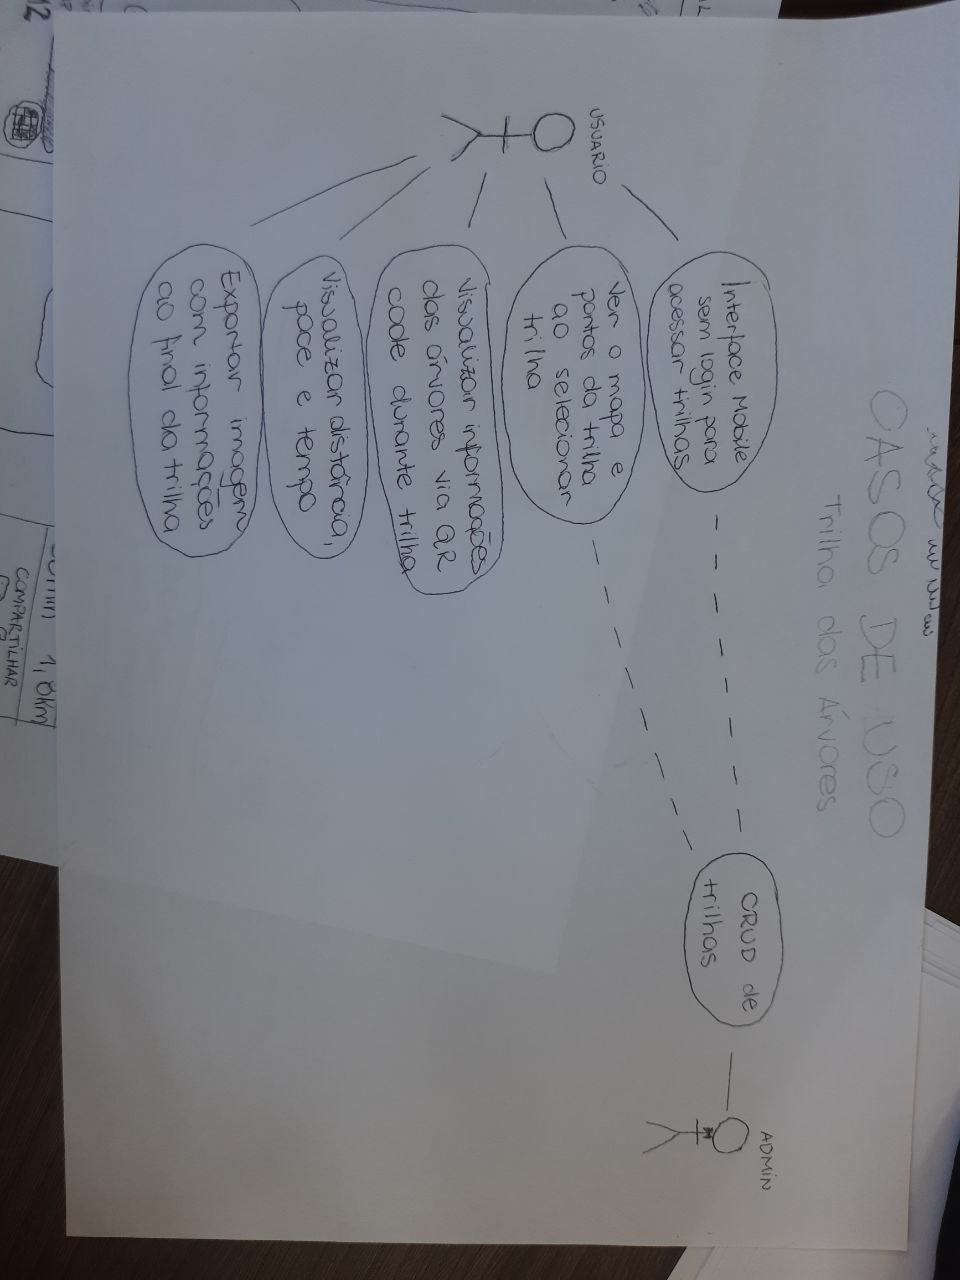 CASOS DE USO
Trilha das Árvores
USUARIO
Interface Mobile
sem login para
acessar trilhas
Ver o mapa e
pontos da trilha
ao selecionar
trilha
Visualizar informações
das árvores via QR
code durante trilha
Visualizar distância,
pace e tempo
Exportar imagem
com informações
ao final da trilha
CRUD de
trilhas
ADMIN
1,8km
COMPARTILHAR
12